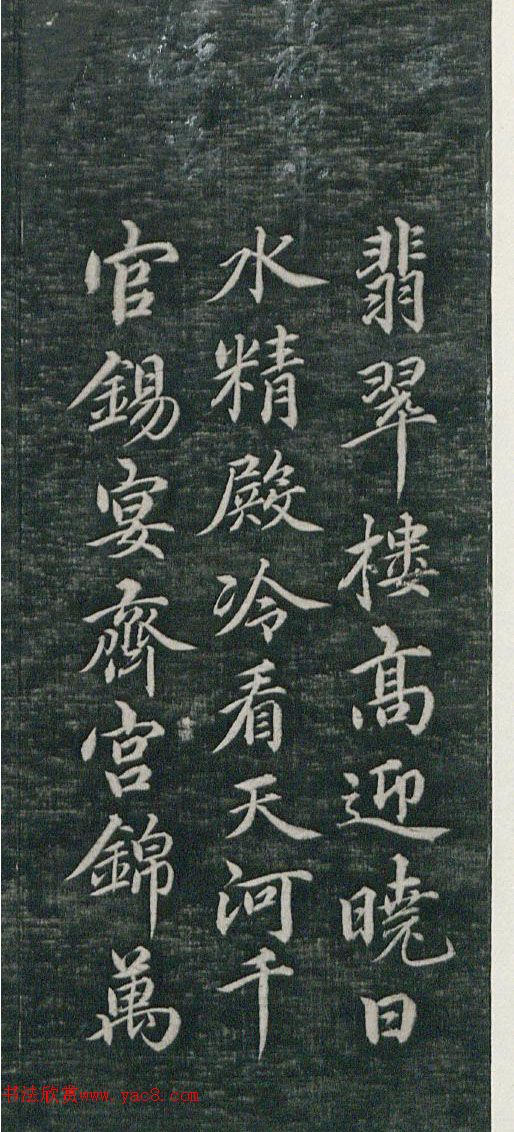 翡翠樓高迎曉日
水精殿冷看天河千
官錫宴齊宮錦萬
书法欣赏www.yac8.com